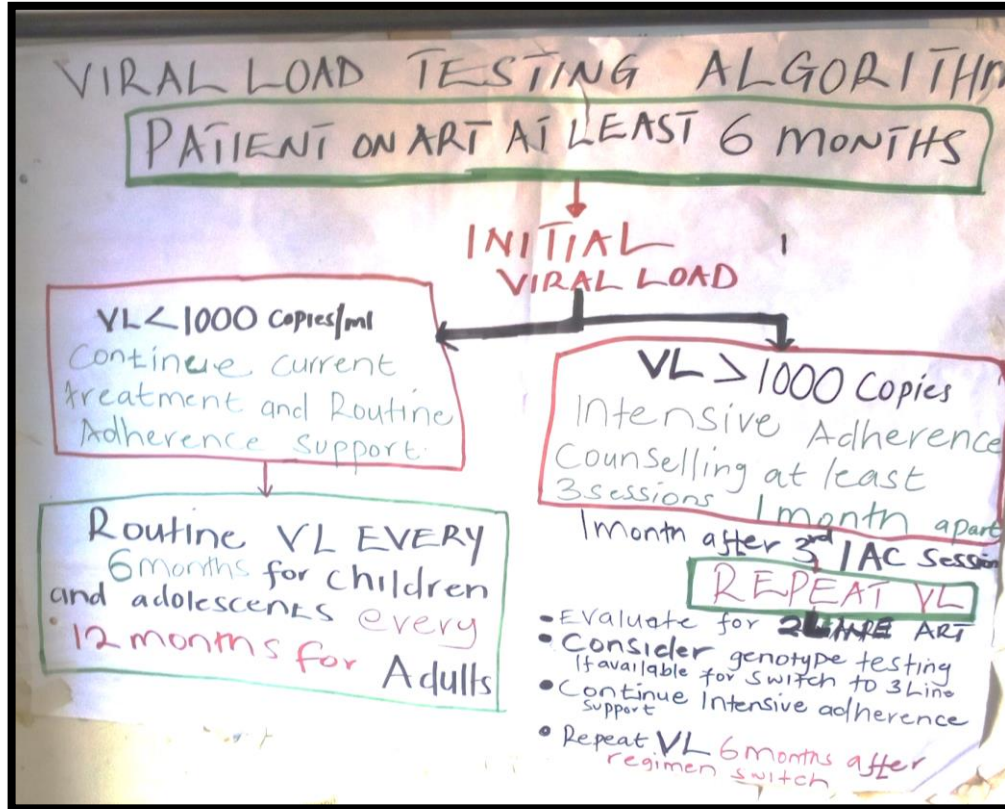 VIRAL LOAD TESTING ALGORITHM
PATIENT ON ART AT LEAST 6 MONTHS
INITIAL
VIRAL LOAD
VL < 1000 copies/ml
Continue current
treatment and Routine
Adherence support.
Routine VL EVERY
6 months for children
and adolescents every
12 months for
Adults
VL > 1000 Copies
Intensive Adherence
Counselling at least
3 sessions 1 month apart
1 month after 3rd IAC Session
REPEAT VL
- Evaluate for ART
• Consider genotype testing
If available for switch to 3 Line
• Continue Intensive adherence
support
• Repeat VL 6 months after
regimen switch